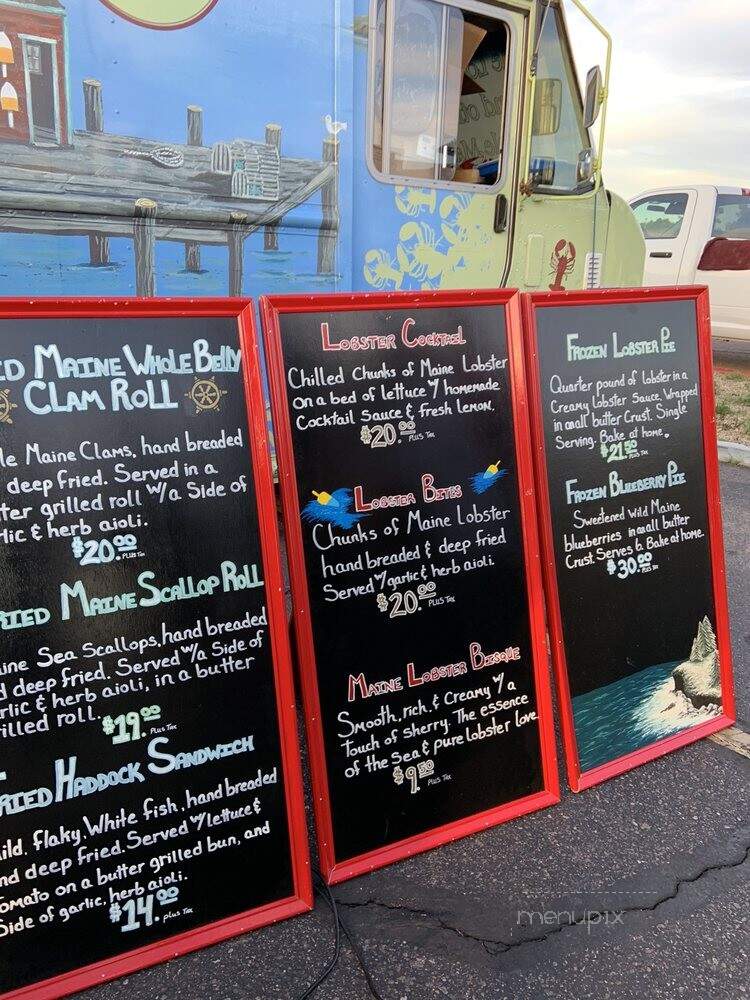 ED MAINE WHOLE BELLY
CLAM ROLL
le Maine Clams, hand breaded
deep fried. Served in a
ter grilled roll w/a Side of
lic & herb aioli.
$20.00 PLUS TAX
RIED MAINE SCALLOP ROLL
aine Sea Scallops, hand breaded
d deep fried. Served w/a Side of
rlic & herb aioli, in a butter
rilled roll.
$19.00 PLUS TAX
FRIED HADDOCK SANDWICH
ild, flaky, White fish, hand breaded
nd deep fried. Served w/lettuce &
omato on a butter grilled bun, and
Side of garlic, herb aioli.
$14.00 plus Tax
LOBSTER COCKTAIL
Chilled Chunks of Maine Lobster
on a bed of lettuce w/ homemade
Cocktail Sauce & fresh lemon.
$20.00 PLUS TAX
LOBSTER BITES
Chunks of Maine Lobster
hand breaded & deep fried
Served w/garlic & herb aioli.
$20.00 PLUS TAX
MAINE LOBSTER BISQUE
Smooth, rich, & Creamy w/a
touch of sherry. The essence
of the Sea & pure lobster love.
$9.50 PLUS TAX
FROZEN LOBSTER PIE
Quarter pound of lobster in a
Creamy lobster Sauce, Wrapped
in an all butter Crust. Single
Serving. Bake at home.
$21.50 PLUS TAX
FROZEN BLUEBERRY PIE
Sweetened Wild Maine
blueberries in an all butter
Crust. Serves 6. Bake at home.
$30.00 PLUS TAX
menupix